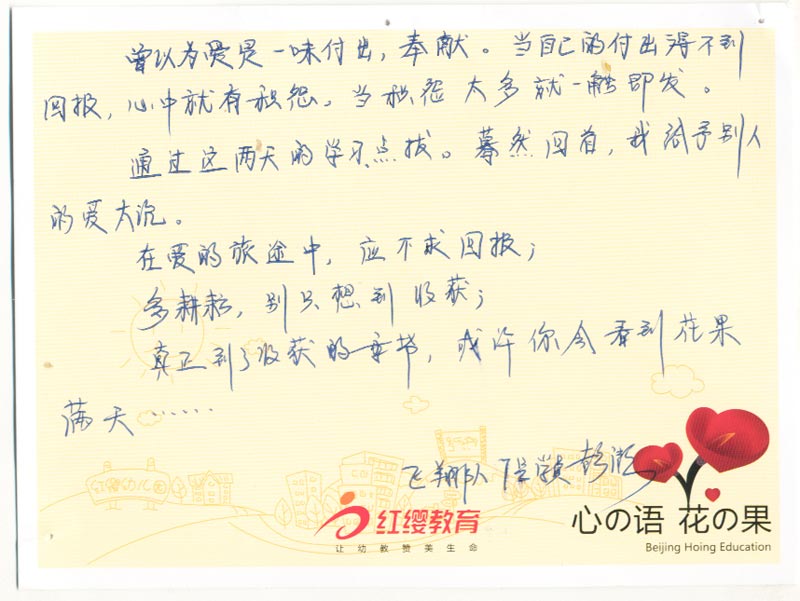 曾以为爱是一味付出，奉献。当自己的付出得不到
回报，心中就有积怨。当积怨太多就一触即发。
通过这两天的学习点拔。蓦然回首，我给予别人
的爱太沉。
在爱的旅途中，应不求回报；
多耕耘，别只想到收获；
真正到了收获的季节，或许你会看到花果
满天……
飞翔队
红缨幼儿园
红缨教育
让幼教赞美生命
心の语 花の果
Beijing Hoing Education